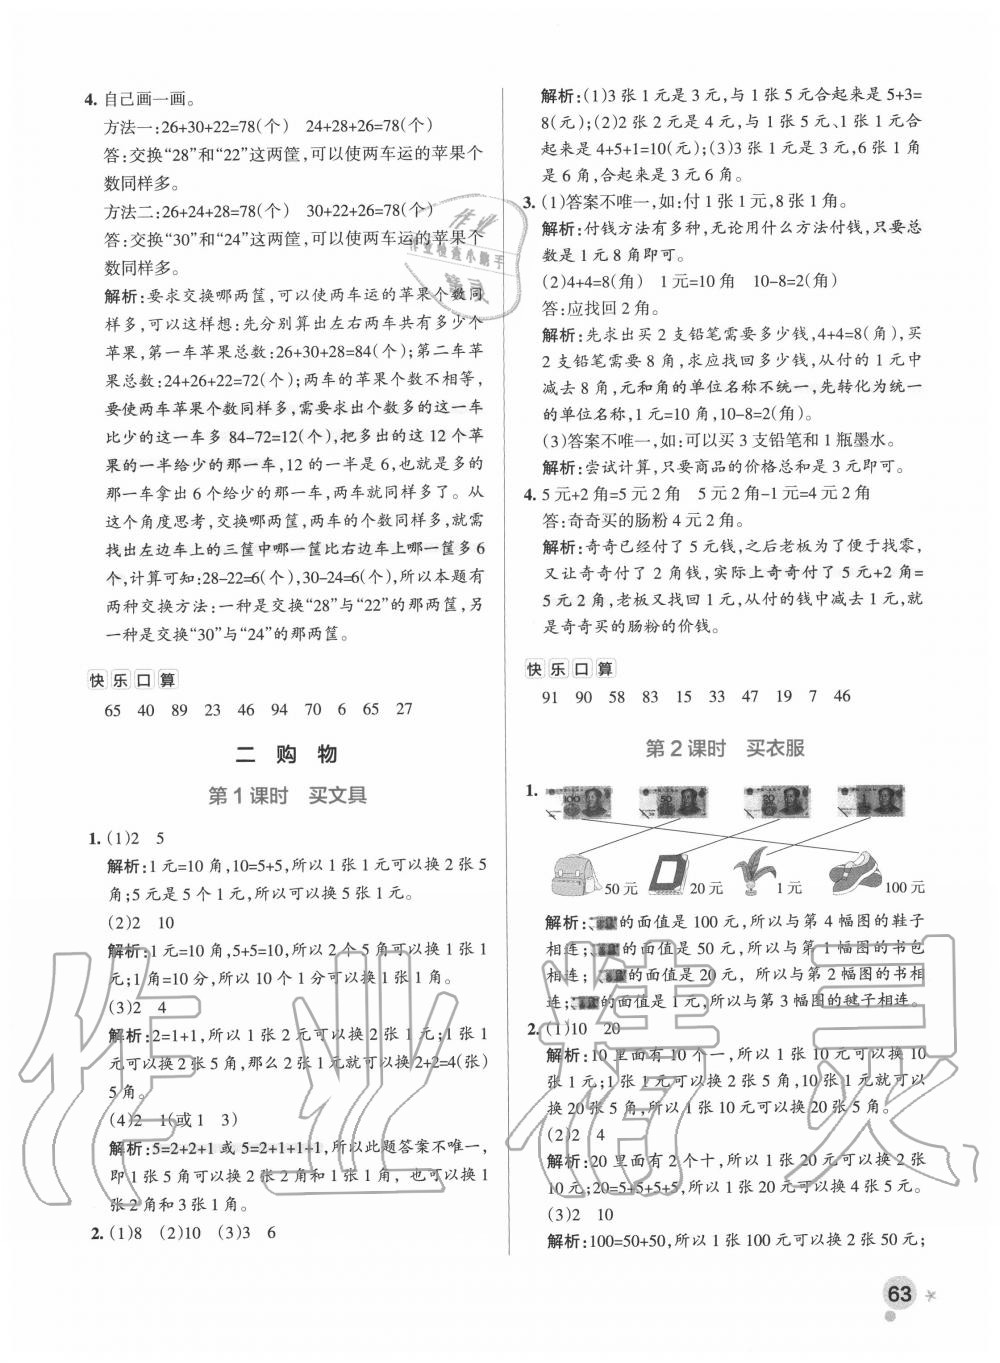 4. 自己画一画。
方法一:26+30+22=78(个) 24+28+26=78(个)
答:交换“28”和“22”这两筐,可以使两车运的苹果个
数同样多。
方法二:26+24+28=78(个) 30+22+26=78(个)
答:交换“30”和“24”这两筐,可以使两车运的苹果个
数同样多。
解析:要求交换哪两筐,可以使两车运的苹果个数同
样多,可以这样想:先分别算出左右两车共有多少个
苹果,第一车苹果总数:26+30+28=84(个);第二车苹
果总数:24+26+22=72(个);两车的苹果个数不相等,
要使两车苹果个数同样多,需要求出个数多的这一车
比少的这一车多 84-72=12(个),把多出的这 12 个苹
果的一半给少的那一车,12 的一半是 6,也就是多的
那一车拿出 6 个给少的那一车,两车就同样多了。从
这个角度思考,交换哪两筐,两车的个数同样多,就需
找出左边车上的三筐中哪一筐比右边车上哪一筐多 6
个,计算可知:28-22=6(个),30-24=6(个),所以本题有
两种交换方法:一种是交换“28”与“22”的那两筐,另
一种是交换“30”与“24”的那两筐。
快乐口算
65 40 89 23 46 94 70 6 65 27
二 购 物
第 1 课时 买文具
1. (1)2 5
解析:1 元=10 角,10=5+5,所以 1 张 1 元可以换 2 张 5
角;5 元是 5 个 1 元,所以可以换 5 张 1 元。
(2)2 10
解析:1 元=10 角,5+5=10,所以 2 个 5 角可以换 1 张 1
元;1 角=10 分,所以 10 个 1 分可以换 1 张 1 角。
(3)2 4
解析:2=1+1,所以 1 张 2 元可以换 2 张 1 元;1 张 1
元可以换 2 张 5 角,那么 2 张 1 元就可以换2+2=4(张)
5 角。
(4)2 1(或 1 3)
解析:5=2+2+1 或 5=2+1+1+1,所以此题答案不唯一,
即 1 张 5 角可以换 2 张 2 角和 1 张 1 角, 也可以换 1
张 2 角和 3 张 1 角。
2. (1)8 (2)10 (3)3 6
解析:(1)3 张 1 元是 3 元,与 1 张 5 元合起来是 5+3=
8(元);(2)2 张 2 元是 4 元,与 1 张 5 元、1 张 1 元合
起来是 4+5+1=10(元);(3)3 张 1 元是 3 元,6 张 1 角
是 6 角,合起来是 3 元 6 角。
3. (1)答案不唯一,如:付 1 张 1 元,8 张 1 角。
解析:付钱方法有多种,无论用什么方法付钱,只要总
数是 1 元 8 角即可。
(2)4+4=8(角) 1 元=10 角 10-8=2(角)
答:应找回 2 角。
解析:先求出买 2 支铅笔需要多少钱,4+4=8(角),买
2 支铅笔需要 8 角,求应找回多少钱,从付的 1 元中
减去 8 角,元和角的单位名称不统一,先转化为统一
的单位名称,1 元=10 角,10-8=2(角)。
(3)答案不唯一,如:可以买 3 支铅笔和 1 瓶墨水。
解析:尝试计算,只要商品的价格总和是 3 元即可。
4. 5 元+2 角=5 元 2 角 5 元 2 角-1 元=4 元 2 角
答:奇奇买的肠粉 4 元 2 角。
解析:奇奇已经付了 5 元钱,之后老板为了便于找零,
又让奇奇付了 2 角钱,实际上奇奇付了 5 元+2 角=
5 元 2 角,老板又找回 1 元,从付的钱中减去 1 元,就
是奇奇买的肠粉的价钱。
快乐口算
91 90 58 83 15 33 47 19 7 46
第 2 课时 买衣服
1.
100 50 20 1
50 元 20 元 1 元 100 元
解析: 的面值是 100 元,所以与第 4 幅图的鞋子
相连; 的面值是 50 元,所以与第 1 幅图的书包
相连; 的面值是 20 元, 所以与第 2 幅图的书相
连; 的面值是 1 元,所以与第 3 幅图的毽子相连。
2. (1)10 20
解析:10 里面有 10 个一,所以 1 张 10 元可以换 10
张 1 元;1 张 1 元可以换 2 张 5 角,10 张 1 元就可以
换 20 张 5 角,所以 1 张 10 元可以换 20 张 5 角。
(2)2 4
解析:20 里面有 2 个十,所以 1 张 20 元可以换 2 张
10 元;20=5+5+5+5,所以 1 张 20 元可以换 4 张 5 元。
(3)2 10
解析:100=50+50,所以 1 张 100 元可以换 2 张 50 元;
63
作业
作业检查小能手
精灵
作业精灵